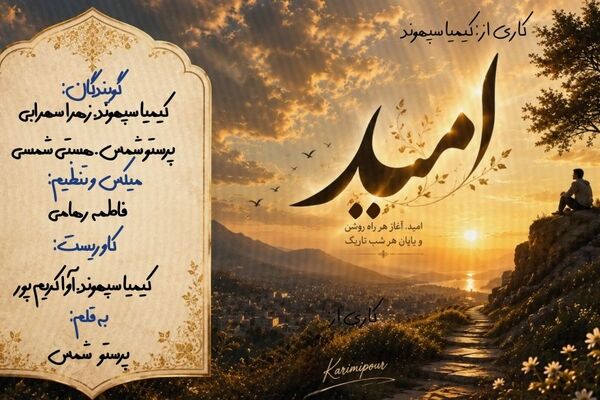 کاری از:کیمیا سپهوند
امید
امید، آغاز هر راه روشن
و پایان هر شب تاریک
گویندگان:
کیمیا سپهوند.زهرا سهرابی
پرستو شمس.هستی شمسی
میکس و تنظیم:
فاطمه رهامی
کاوریست:
کیمیا سپهوند.آوا کریم پور
به قلم:
پرستو شمس
کاری از:
Karimipour